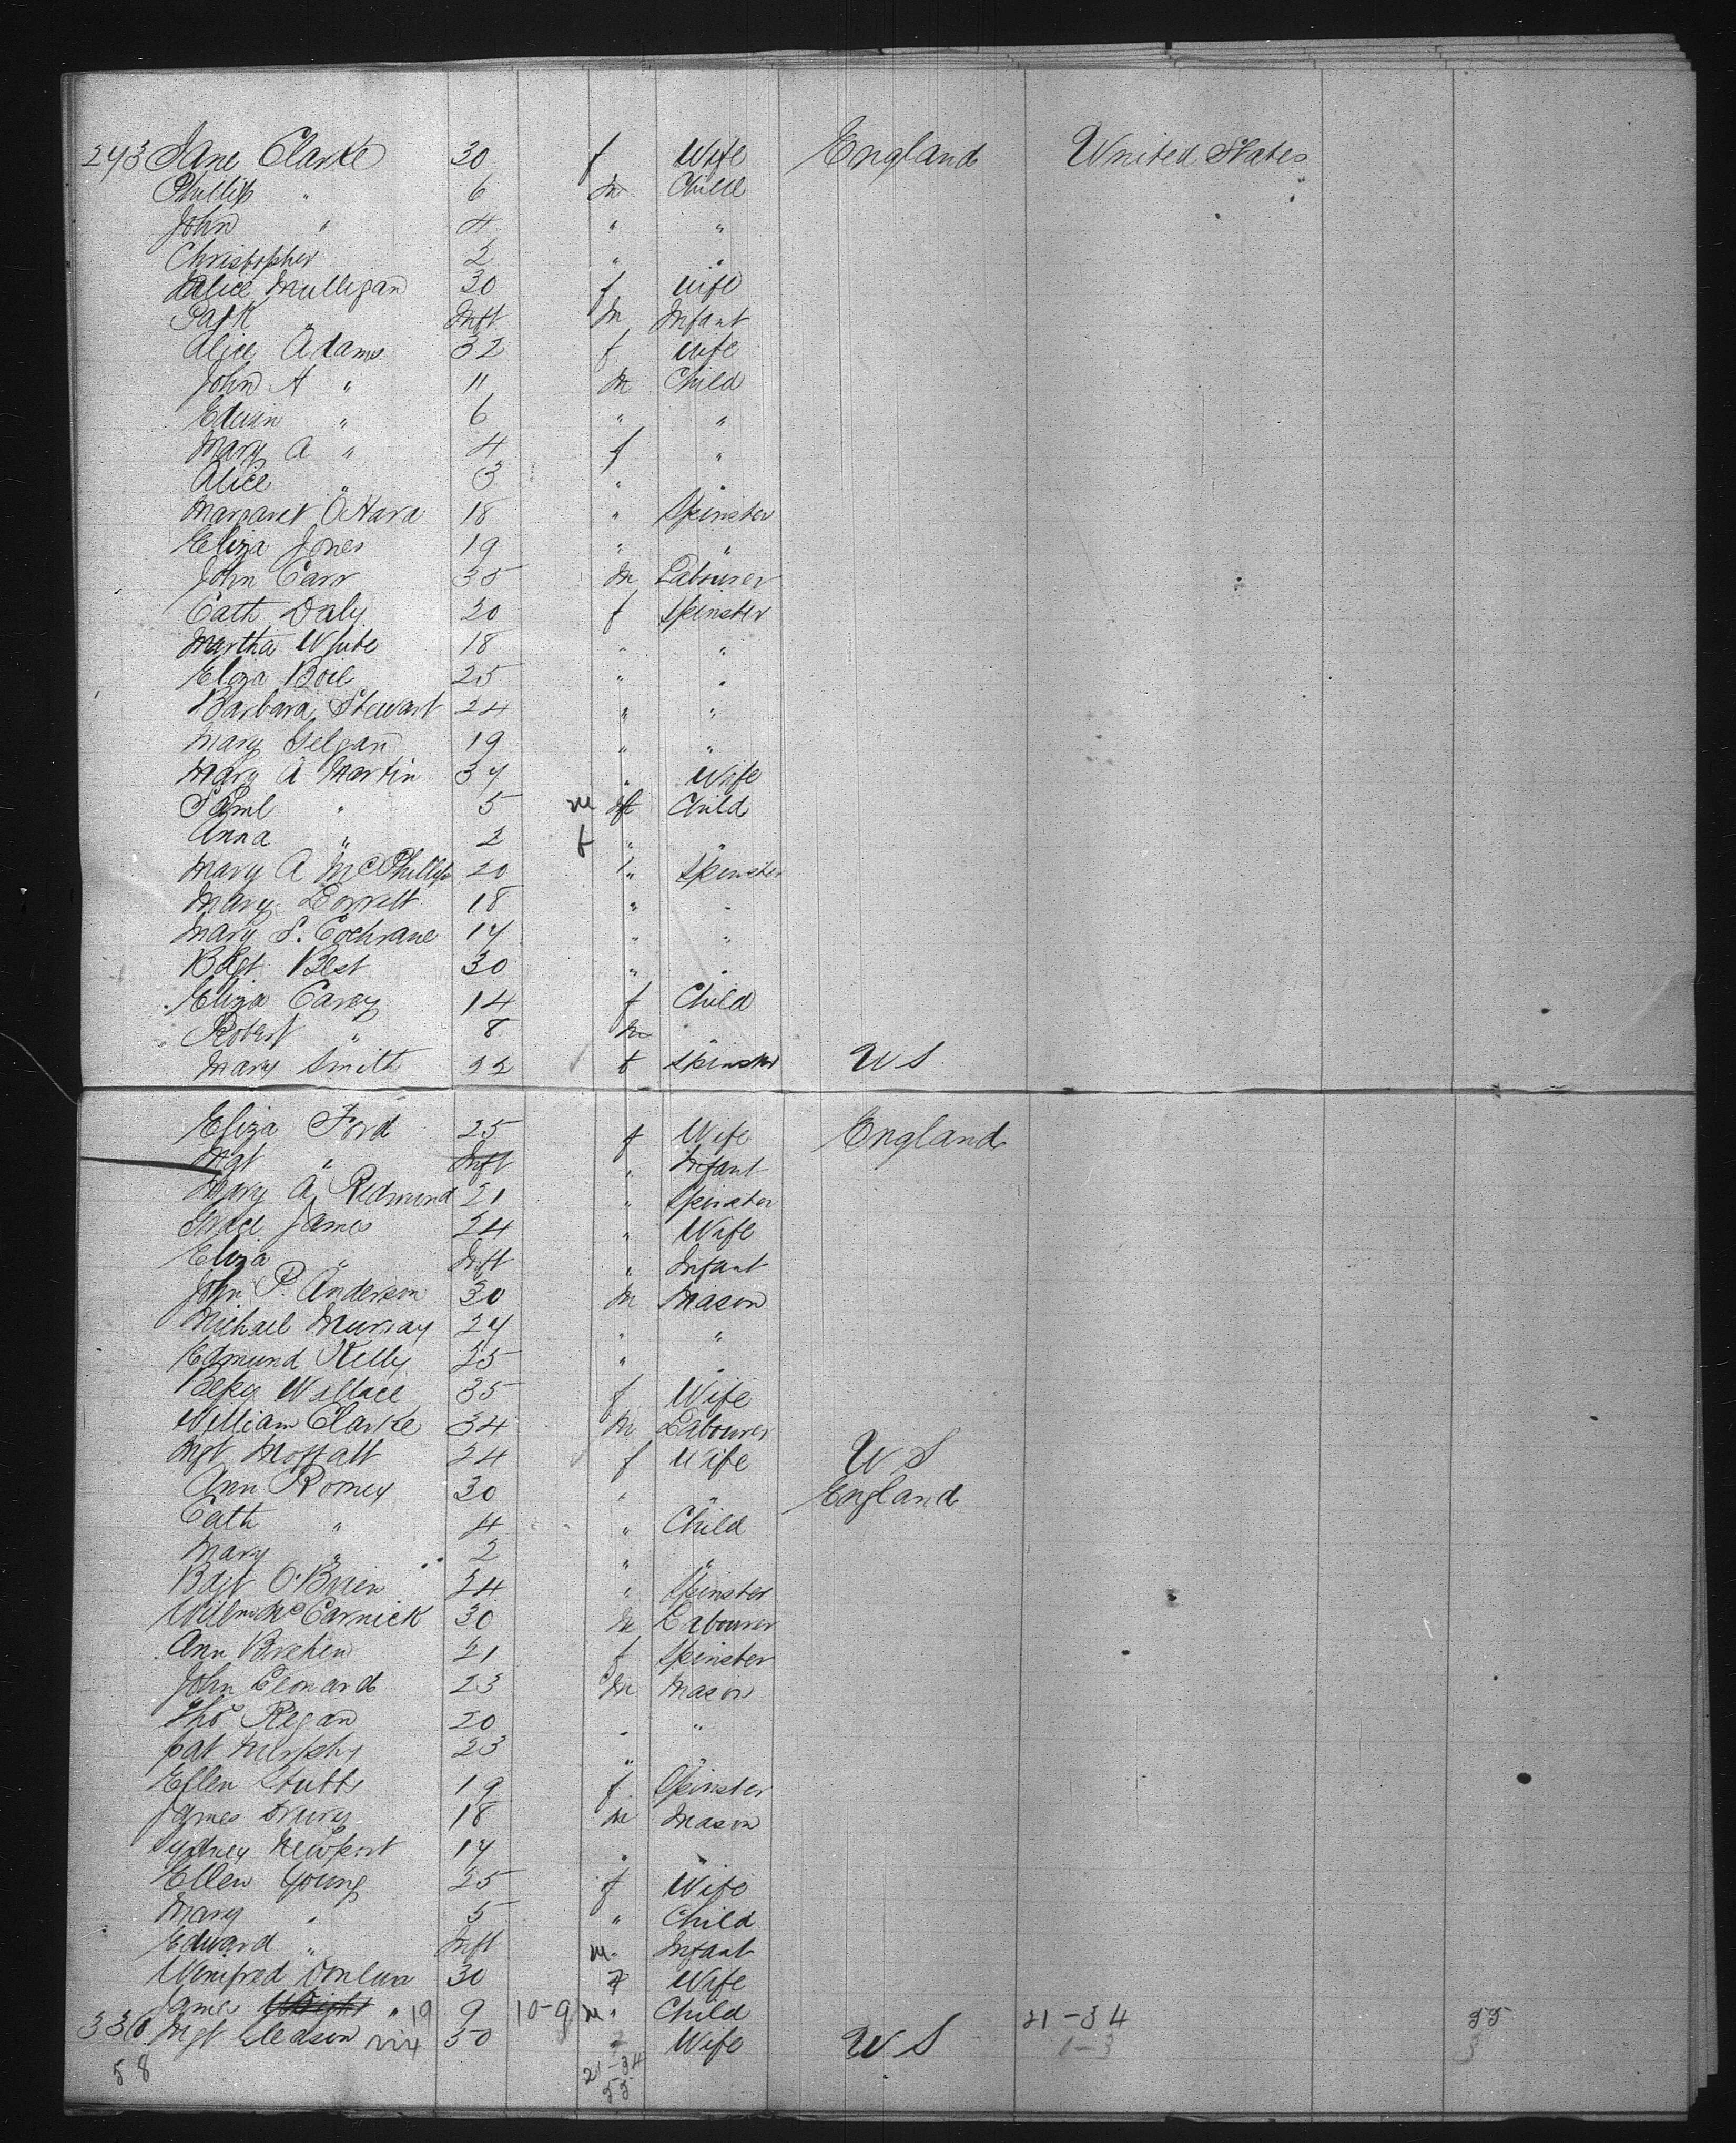 243 Jane Clarke 30 f Wife England United States
Phillip " 6 m Child
John " 4 " "
Christopher 2 " "
Alice Mulligan 30 f Wife
Patk " Inft m Infant
Alice Adams 32 f Wife
John A " 11 m Child
Edwin " 6 " "
Mary A " 4 f "
Alice " 3 " "
Margaret OHara 18 " Spinster
Eliza Jones 19 " "
John Carr 35 m Labourer
Cath Daly 20 f Spinster
Martha White 18 " "
Eliza Boil 25 " "
Barbara Stewart 24 " "
Mary Gelgan 19 " "
Mary A Martin 37 " Wife
Saml " 5 m Child
Anna " 2 f " "
Mary A McPhillips 20 " Spinster
Mary 18 " "
Mary S. Cochrane 17 " "
Bdgt Best 30 " "
Eliza Carey 14 f Child
Robert " 8 m "
Mary Smith 22 f Spinster U S
Eliza Ford 25 f Wife England
Mgt " Inft " Infant
Mary A Redmund 21 " Spinster
Grace James 24 " Wife
Eliza " Inft " Infant
John P. Anderson 30 m Mason
Michael Murray 27 " "
Edmund Kelly 25 " "
Betsy Wallace 35 f Wife
William Clarke 34 m Labourer
Mgt Moffatt 24 f Wife U S
Ann Romey 30 " " England
Cath " 4 " Child
Mary " 2 " "
Bdgt O'Brien 24 " Spinster
Willm McCarnick 30 m Labourer
Ann Brehen 21 f Spinster
John Leonard 23 m Mason
Thos Regan 20 " "
Pat Murphy 23 " "
Ellen Stubbs 19 f Spinster
James Drury 18 m Mason
Sydney Newport 17 " "
Ellen Young 25 f Wife
Mary " 5 " Child
Edward " Inft m Infant
Winifred Donlan 30 f Wife
James " 19 9 10-9 m " Child 21-34 55
330 Mgt Gleason 30 f Wife U S 1-3 3
58 21-34
55